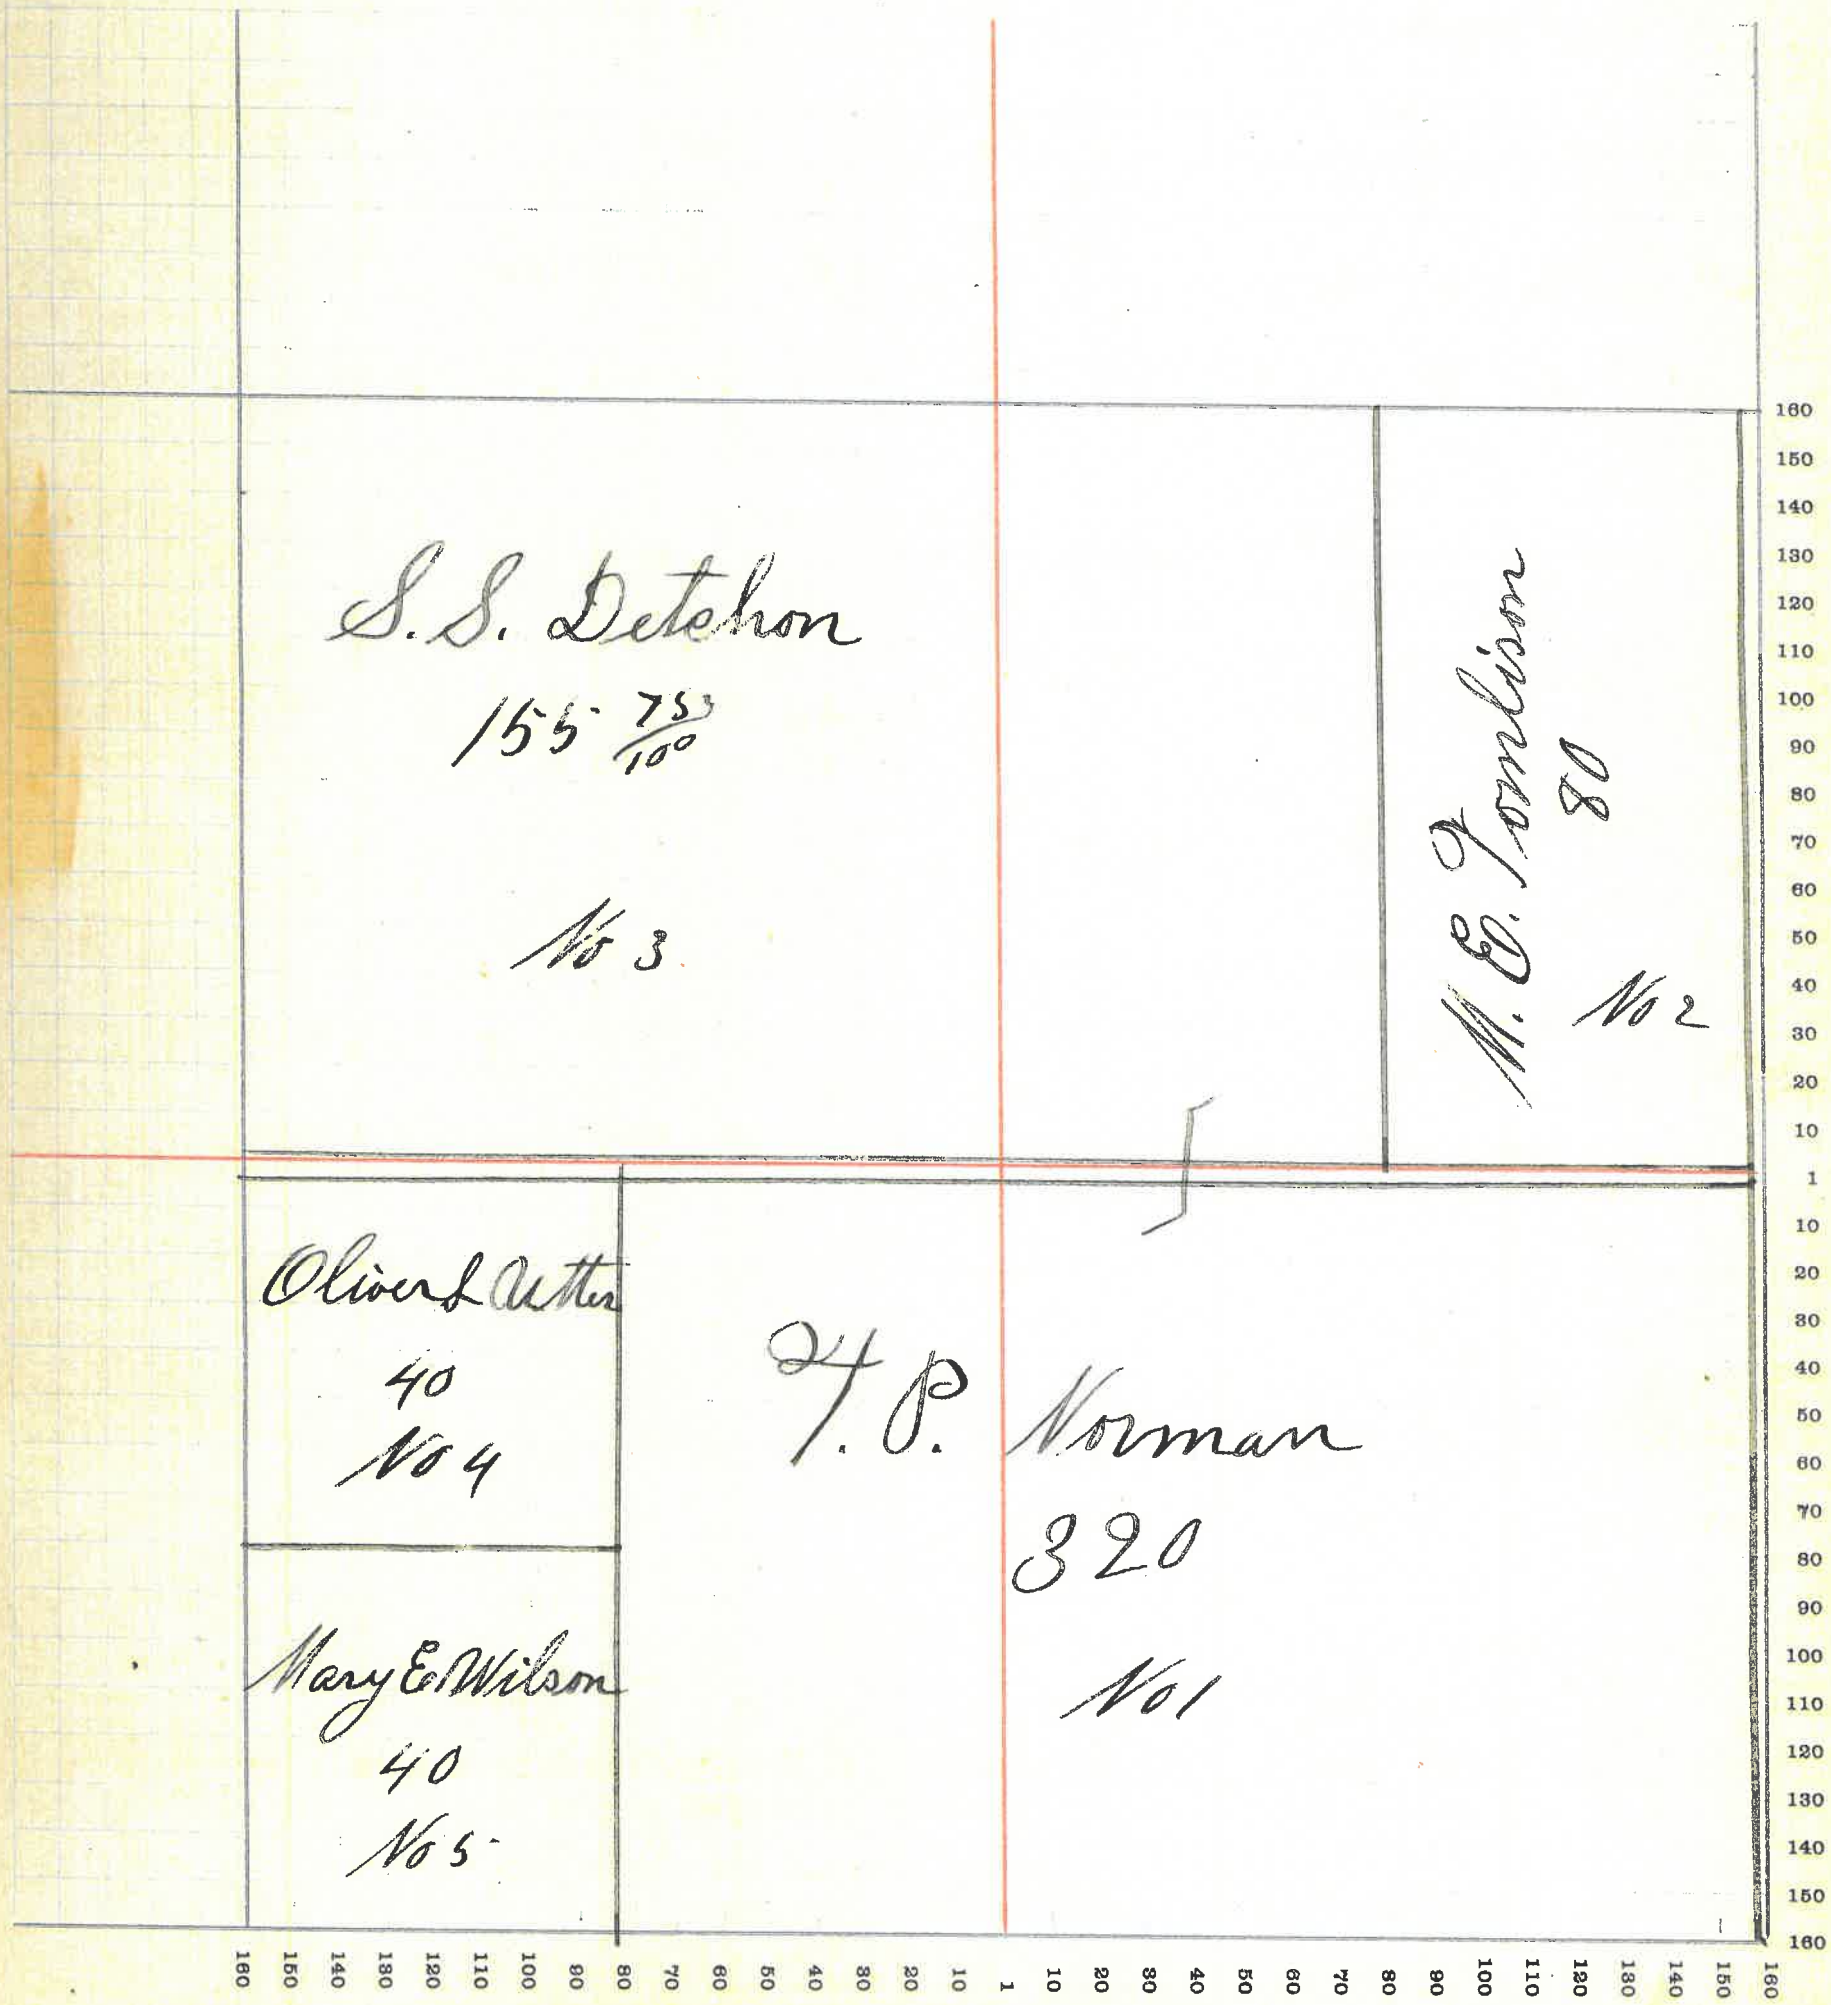 S. S. Detchon
155 75/100
No 3
M. E. Tomlison
80
No 2
Oliver L Utter
40
No 4
F. P. Norman
320
No 1
Mary E. Wilson
40
No 5
160
150
140
130
120
110
100
90
80
70
60
50
40
30
20
10
1
10
20
30
40
50
60
70
80
90
100
110
120
130
140
150
160
160 150 140 130 120 110 100 90 80 70 60 50 40 30 20 10 1 10 20 30 40 50 60 70 80 90 100 110 120 130 140 150 160